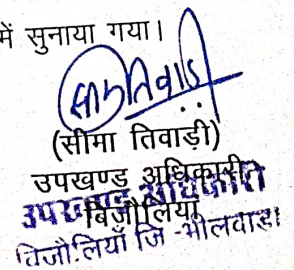 में सुनाया गया।
(सीमा तिवाड़ी)
उपखण्ड अधिकारी
बिजौलिया
उपखण्ड अधिकारी
बिजौलियाँ जि.-भीलवाड़ा